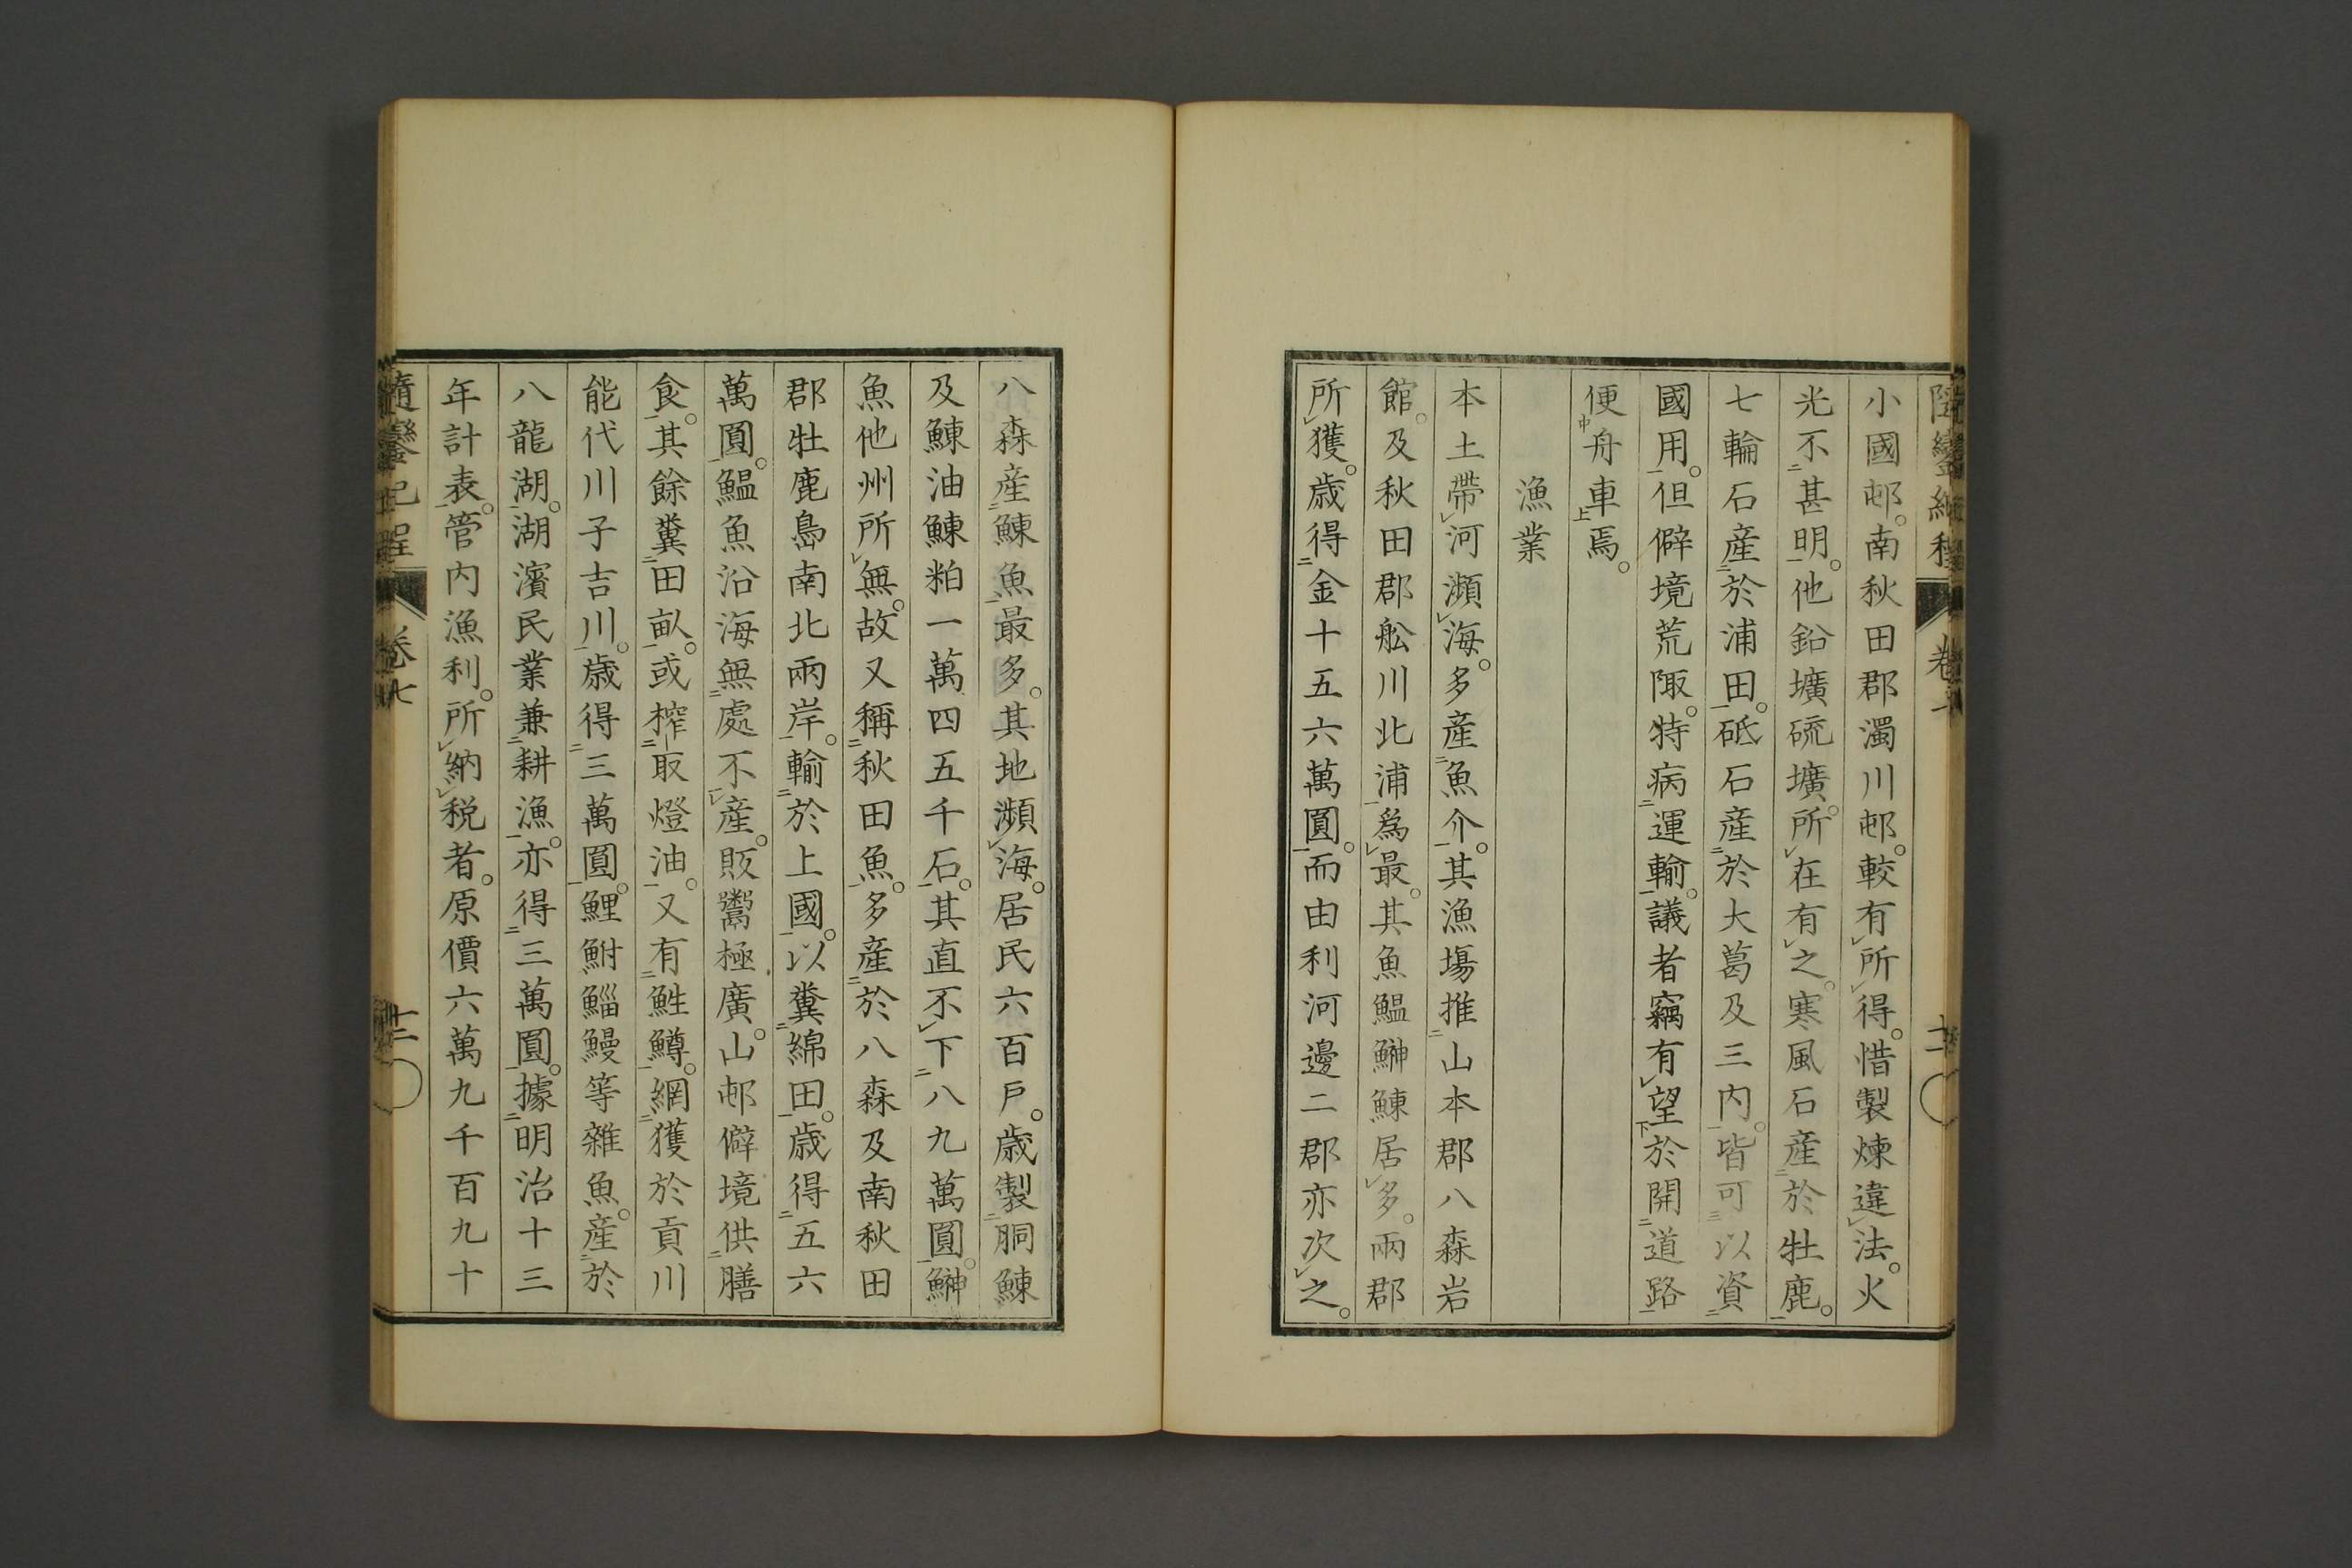 小國邨。南秋田郡濁川邨。較有所得。惜製煉違法。火
光不甚明。他鉛壙硫壙。所在有之。寒風石産於牡鹿。
七輪石産於浦田。砥石産於大葛及三内。皆可以資
國用。但僻境荒陬。特病運輸。議者竊有望於開道路
便舟車焉。
漁業
本土帶河瀕海。多産魚介。其漁塲推山本郡八森岩
館。及秋田郡舩川北浦爲最。其魚鰮鰰鰊居多。兩郡
所獲。歳得金十五六萬圓。而由利河邊二郡亦次之。
八森産鰊魚最多。其地瀕海。居民六百戸。歳製胴鰊
及鰊油鰊粕一萬四五千石。其直不下八九萬圓。鰰
魚他州所無。故又稱秋田魚。多産於八森及南秋田
郡牡鹿島南北兩岸。輸於上國。以糞綿田。歳得五六
萬圓。鰮魚沿海無處不産。販鬻極廣。山邨僻境供膳
食。其餘糞田畝。或搾取燈油。又有鮏鱒。網獲於貢川
能代川子吉川。歳得三萬圓。鯉鮒鯔鰻等雜魚。産於
八龍湖。湖濱民業兼耕漁。亦得三萬圓。據明治十三
年計表。管内漁利。所納税者。原價六萬九千百九十
隨鑾紀程 卷七 十二